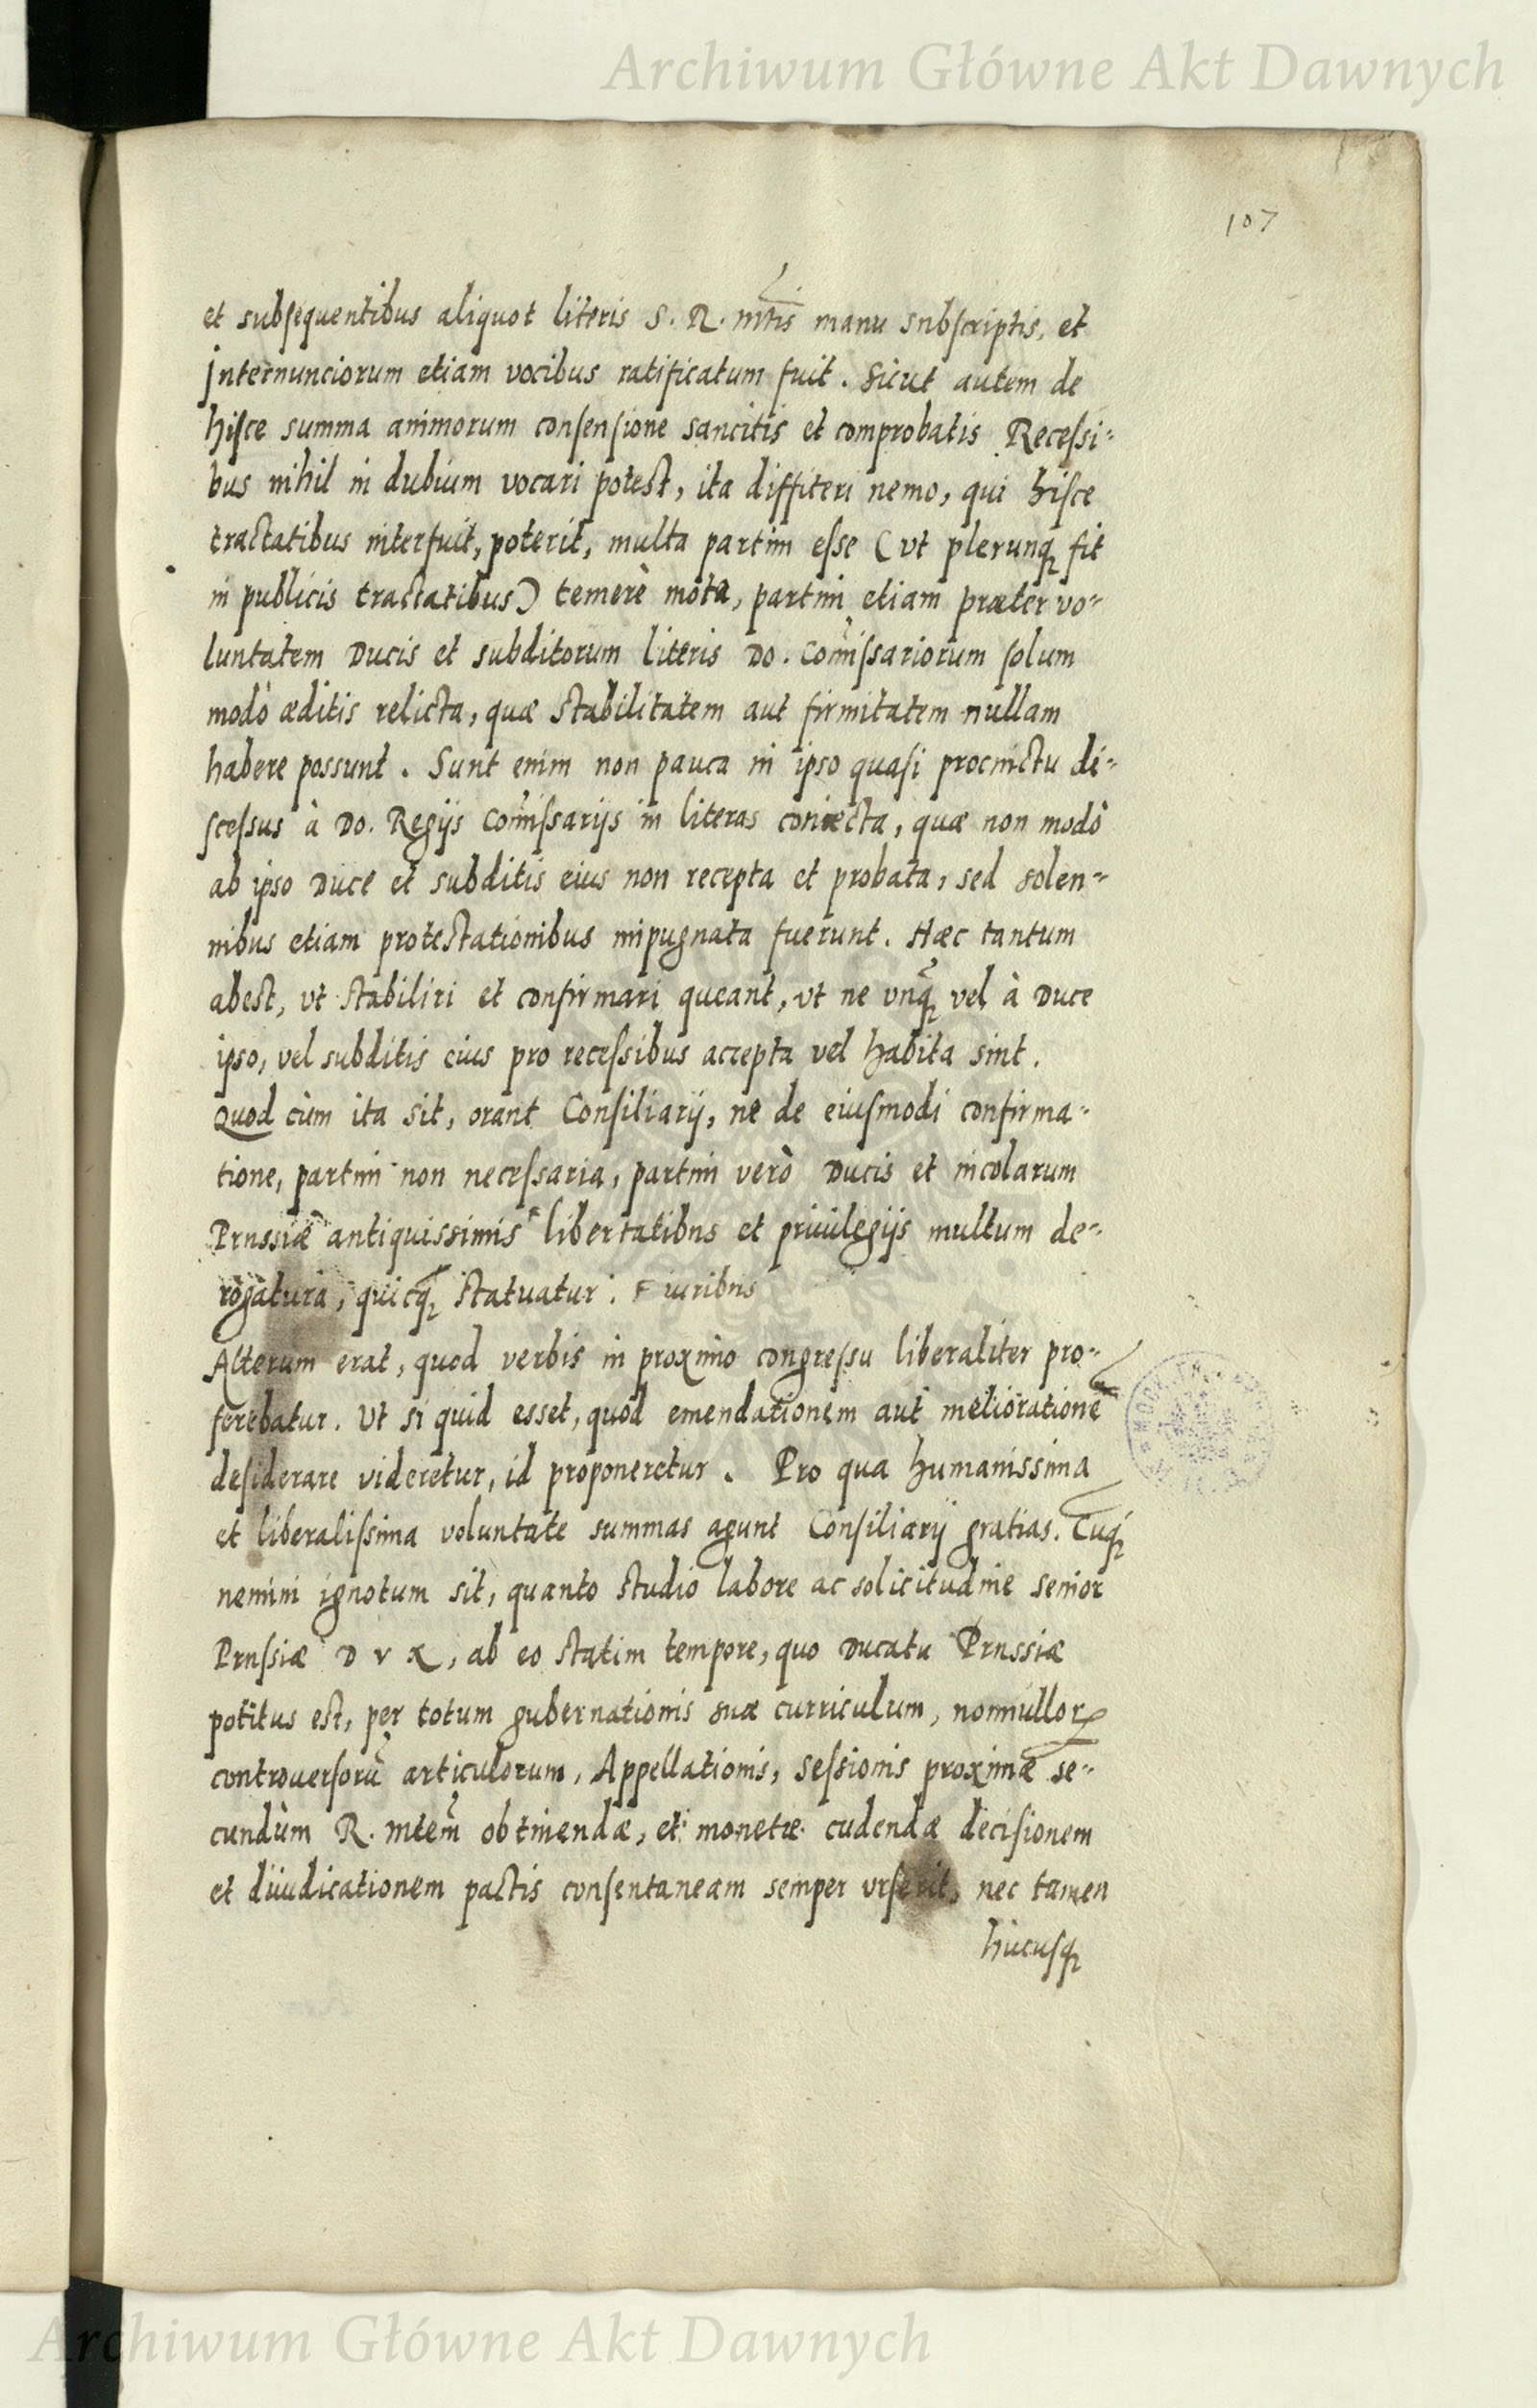 Archiwum Główne Akt Dawnych
107
et subsequentibus aliquot literis S. R. Mtis manu subscriptis, et
Internunciorum etiam vocibus ratificatum fuit. Sicut autem de
hisce summa animorum consensione sancitis et comprobatis Recessi-
bus nihil in dubium vocari potest, ita diffiteri nemo, qui hisce
tractatibus interfuit, poterit, multa partim esse (vt plerunq fit
in publicis tractatibus) temerè mota, partim etiam præter vo-
luntatem Ducis et subditorum literis Do. Comissariorum solum
modò æditis relicta, quæ stabilitatem aut firmitatem nullam
habere possunt. Sunt enim non pauca in ipso quasi procinctu di-
scessus à Do. Regijs Comissarijs in literas coniecta, quæ non modò
ab ipso Duce et subditis eius non recepta et probata, sed solen-
nibus etiam protestationibus impugnata fuerunt. Hæc tantum
abest, vt stabiliri et confirmari queant, vt ne vnq vel à Duce
ipso, vel subditis eius pro recessibus accepta vel habita sint.
Quod cùm ita sit, orant Consiliarij, ne de eiusmodi confirma-
tione, partim non necessaria, partim verò Ducis et incolarum
Prussiæ antiquissimis ꜰ libertatibus et priuilegijs multum de-
rogatura, quicq statuatur. ꜰ iuribus
Alterum erat, quod verbis in proximo congressu liberaliter pro-
ferebatur. Vt si quid esset, quod emendationem aut melioratione
desiderare videretur, id proponeretur. Pro qua humanissima
et liberalissima voluntate summas agunt Consiliarij gratias. Cuq
nemini ignotum sit, quanto studio labore ac solicitudine senior
Prussiæ D V X, ab eo statim tempore, quo Ducatu Prussiæ
potitus est, per totum gubernationis suæ curriculum, nonnullorꝝ
controuersorũ articulorum, Appellationis, sessionis proximæ se-
cundùm R. Mtem obtinendæ, et monetæ cudendæ decisionem
et diiudicationem pactis consentaneam semper vrserit, nec tamen
hucusq
Archiwum Główne Akt Dawnych